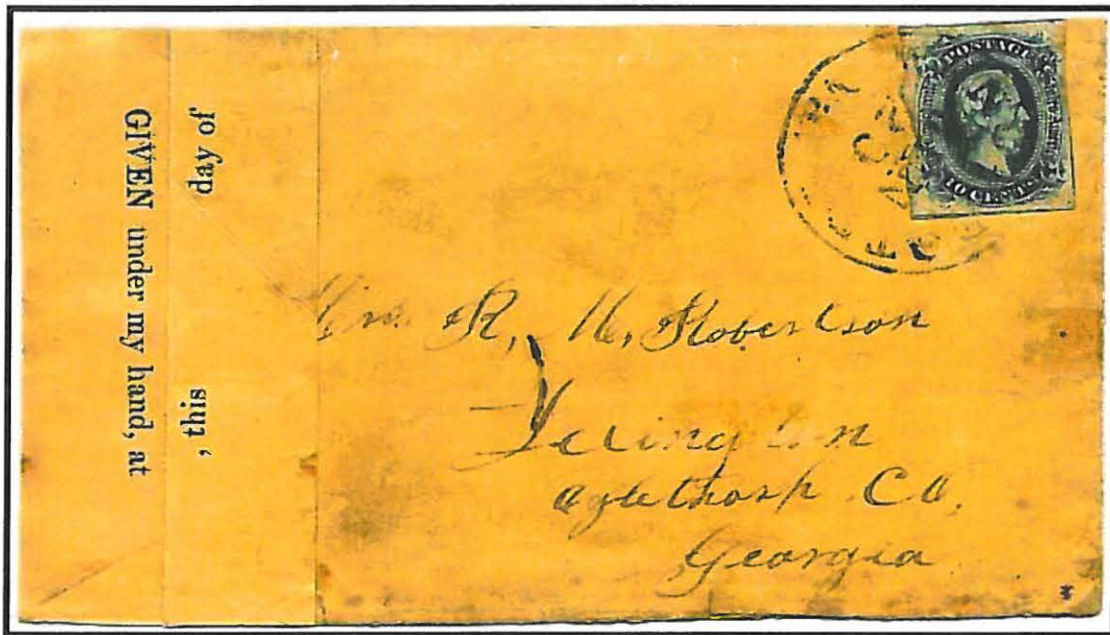 GIVEN under my hand, at
, this day of
POSTAGE
10 CENTS
R, M, Robertson
Lexington
Oglethorp Co,
Georgia